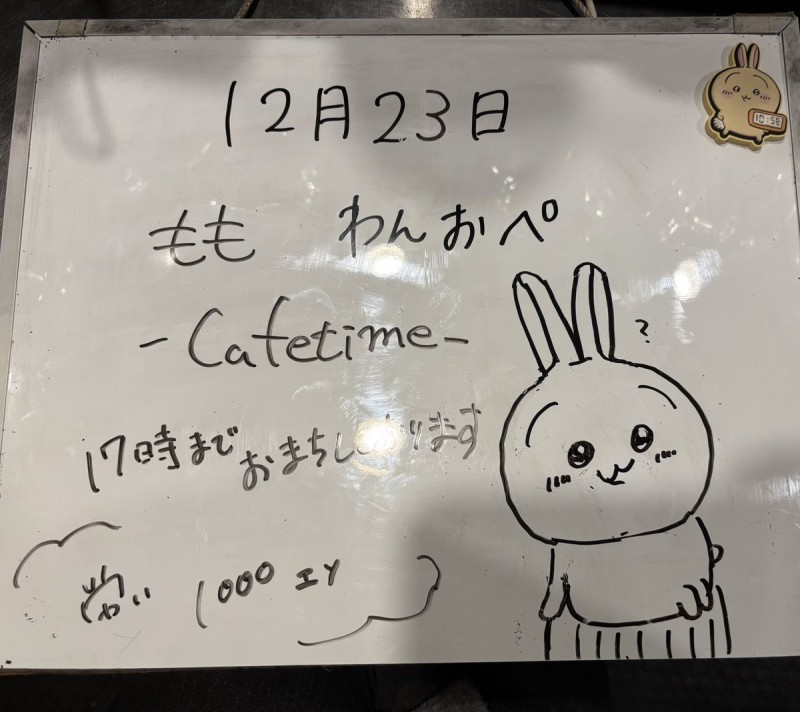 12月23日
10:58
もも わんおペ
-Cafetime-
?
17時まで
おまちしております
1000エン